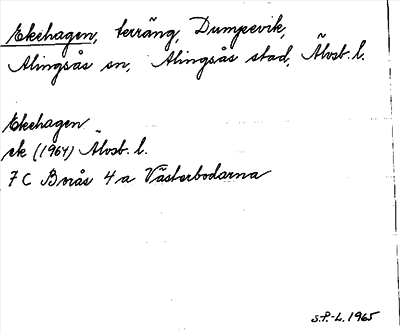 Ekehagen, terräng, Dumpevik,
Alingsås sn, Alingsås stad, Älvsb. l.
Ekehagen
ek (1964) Älvsb. l.
7 C Borås 4 a Västerbodarna
S.P.-L. 1965